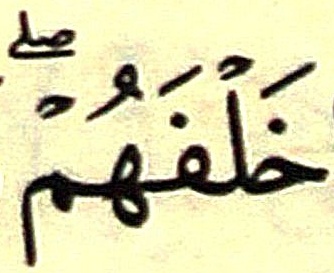 خَلْفَهُمْ ۖ